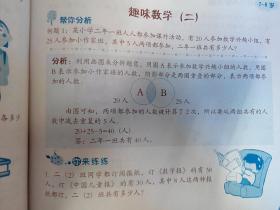 趣味数学(二)
7-8岁
帮你分析
例题1:某小学二年一班人人都参加课外活动,有20人参加数学兴趣小组,有
25人参加小作家班,其中5人两项都参加,二年一班共有多少人?
分析:利用画图来分析题意,用圆A表示参加数学兴趣小组的人数,用圆
B表示参加小作家班的人数,阴影部分是两圆重叠的部分,表示两项都参
加的人数。
A
B
20人
5人
25人
由图可知,两项都参加的人数被计算了2次,所以要从两组共有的人
数中减去重复的5人。
20+25-5=40(人)
答:二年一班共有40人。
来练练
1.二(2)班同学都订阅报纸,订《数学报》的有36
人,订《中国儿童报》的有30人,其中8人这两种报
都订,二(2)班共有多少人?